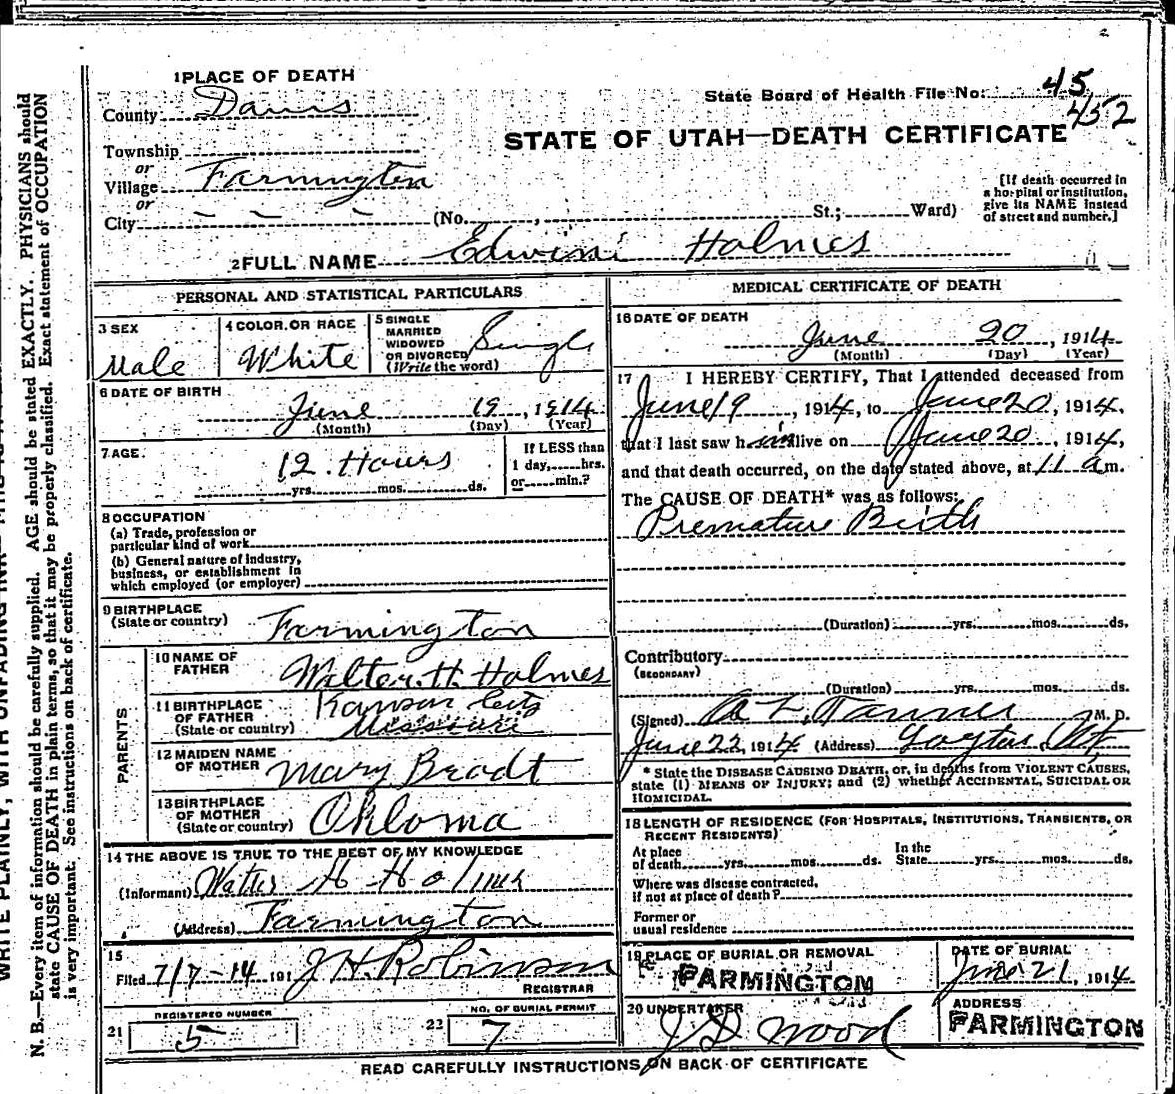 1 PLACE OF DEATH
County Davis
State Board of Health File No: 45
452
STATE OF UTAH—DEATH CERTIFICATE
Township
or
Village Farmington
or
City — — — (No. , St.; Ward)
[If death occurred in
a hospital or institution,
give its NAME instead
of street and number.]
2 FULL NAME Edwin Holmes
PERSONAL AND STATISTICAL PARTICULARS
3 SEX
Male
4 COLOR OR RACE
White
5 SINGLE
MARRIED
WIDOWED
OR DIVORCED
(Write the word)
Single
6 DATE OF BIRTH
June 19, 1914
(Month) (Day) (Year)
7 AGE
12 Hours
yrs. mos. ds.
If LESS than
1 day, hrs.
or min.?
8 OCCUPATION
(a) Trade, profession or
particular kind of work
(b) General nature of industry,
business, or establishment in
which employed (or employer)
9 BIRTHPLACE
(State or country) Farmington
PARENTS
10 NAME OF
FATHER Walter H. Holmes
11 BIRTHPLACE
OF FATHER
(State or country)
Kansas City
Missouri
12 MAIDEN NAME
OF MOTHER Mary Bradt
13 BIRTHPLACE
OF MOTHER
(State or country) Okloma
14 THE ABOVE IS TRUE TO THE BEST OF MY KNOWLEDGE
(Informant) Walter H Holmes
(Address) Farmington
15
Filed 7/7-14 191 J H. Robinson
REGISTRAR
21 REGISTERED NUMBER
5
22 NO. OF BURIAL PERMIT
7
MEDICAL CERTIFICATE OF DEATH
16 DATE OF DEATH
June 20, 1914
(Month) (Day) (Year)
17 I HEREBY CERTIFY, That I attended deceased from
June 19, 1914, to June 20, 1914,
that I last saw him alive on June 20, 1914,
and that death occurred, on the date stated above, at 11 a m.
The CAUSE OF DEATH* was as follows:
Premature Birth
(Duration) yrs. mos. ds.
Contributory
(SECONDARY)
(Duration) yrs. mos. ds.
(Signed) A Z. Tanner M.D.
June 22, 1914 (Address) Layton, Ut
* State the DISEASE CAUSING DEATH, or, in deaths from VIOLENT CAUSES,
state (1) MEANS OF INJURY; and (2) whether ACCIDENTAL, SUICIDAL OR
HOMICIDAL.
18 LENGTH OF RESIDENCE (FOR HOSPITALS, INSTITUTIONS, TRANSIENTS, OR
RECENT RESIDENTS)
At place
of death yrs. mos. ds. In the
State yrs. mos. ds.
Where was disease contracted,
if not at place of death?
Former or
usual residence
19 PLACE OF BURIAL OR REMOVAL
FARMINGTON
DATE OF BURIAL
June 21, 1914
20 UNDERTAKER
J D Wood
ADDRESS
FARMINGTON
READ CAREFULLY INSTRUCTIONS ON BACK OF CERTIFICATE
WRITE PLAINLY, WITH UNFADING INK
N. B.—Every item of information should be carefully supplied. AGE should be stated EXACTLY. PHYSICIANS should
state CAUSE OF DEATH in plain terms, so that it may be properly classified. Exact statement of OCCUPATION
is very important. See instructions on back of certificate.